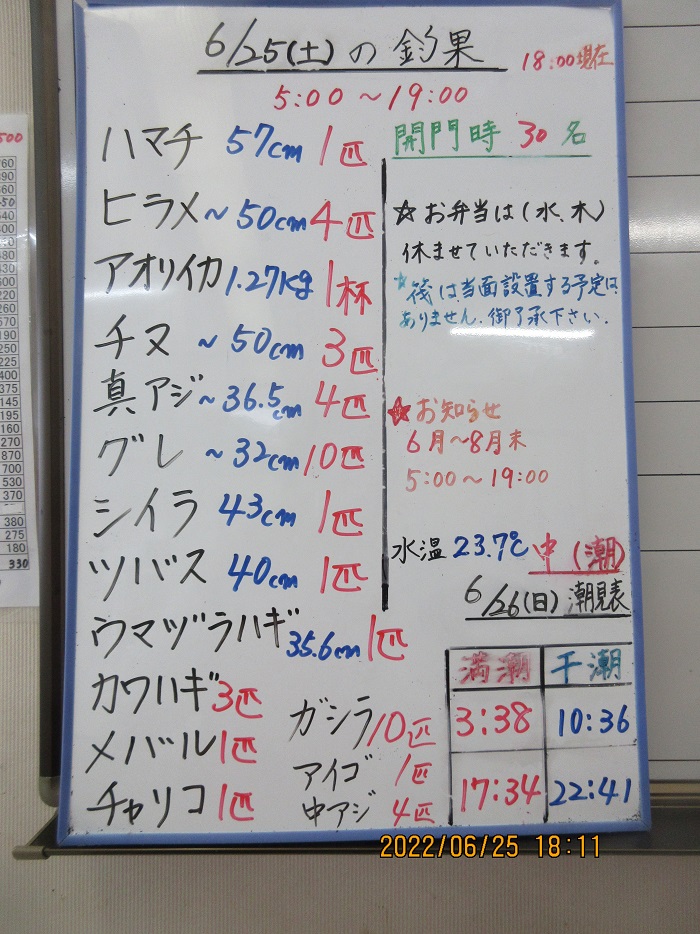 6/25(土)の釣果
18:00現在
5:00～19:00
ハマチ 57cm 1匹
ヒラメ～50cm 4匹
アオリイカ 1.27kg 1杯
チヌ ～50cm 3匹
真アジ～36.5cm 4匹
グレ ～32cm 10匹
シイラ 43cm 1匹
ツバス 40cm 1匹
ウマヅラハギ 35.6cm 1匹
カワハギ 3匹
メバル 1匹
チャリコ 1匹
ガシラ 10匹
アイゴ 1匹
中アジ 4匹
開門時 30名
☆お弁当は(水、木)
休ませていただきます。
☆筏は当面設置する予定は
ありません。御了承下さい。
☆お知らせ
6月～8月末
5:00～19:00
水温 23.7℃ 中(潮)
6/26(日)潮見表
満潮 干潮
3:38 10:36
17:34 22:41
2022/06/25 18:11
500
760
390
360
540
400
300
480
430
600
220
260
570
190
250
225
400
375
145
195
160
270
870
700
530
370
380
275
180
330